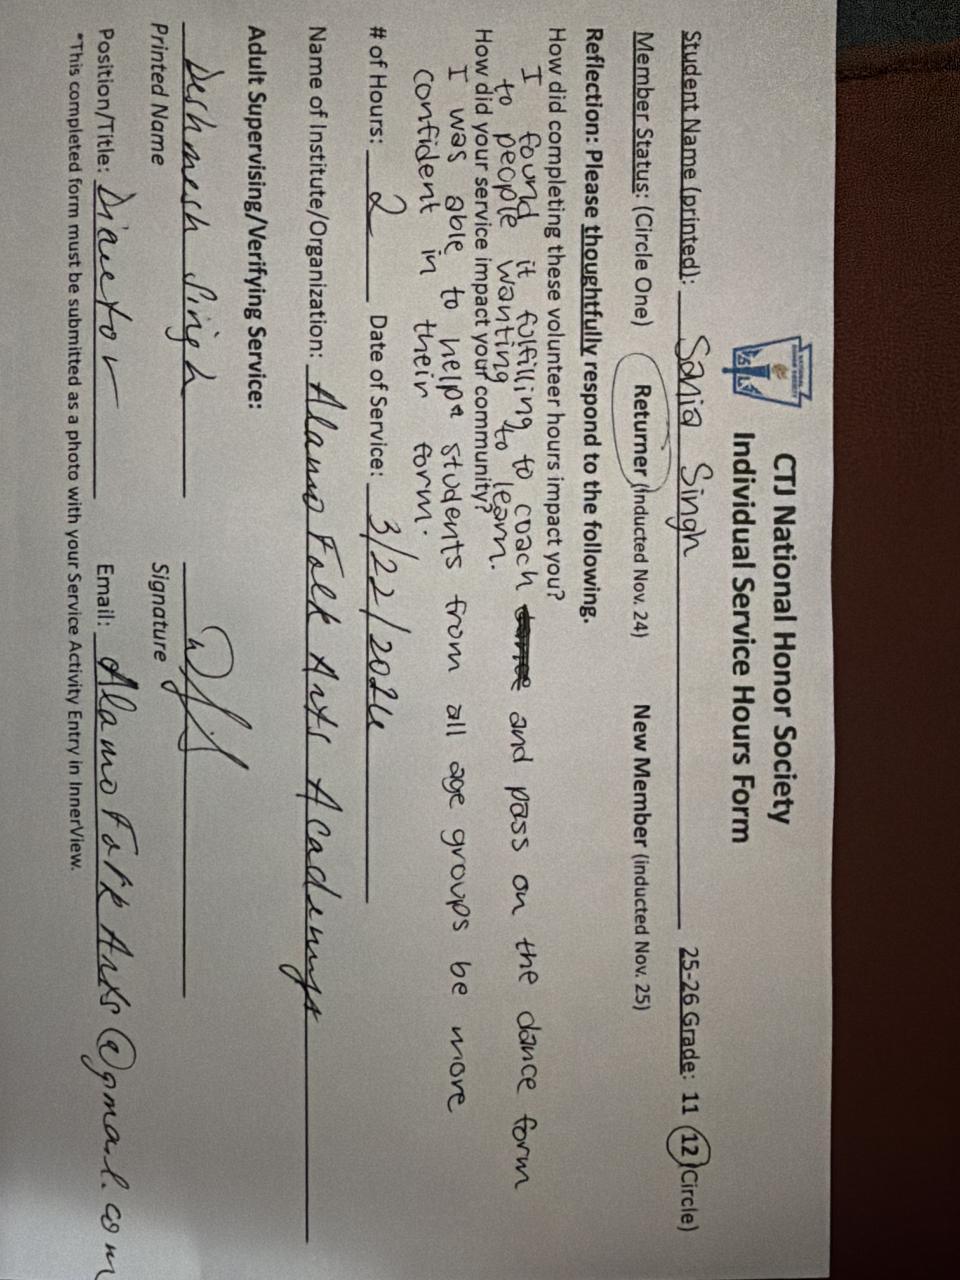 CTJ National Honor Society
Individual Service Hours Form
Student Name (printted): Sania Singh 25-26 Grade: 11 12 (Circle)
Member Status: (Circle One) Returner (Inducted Nov. 24) New Member (inducted Nov. 25)
Reflection: Please thoughtfully respond to the following.
How did completing these volunteer hours impact you?
I found it fulfilling to coach and pass on the dance form
to people wanting to learn.
How did your service impact your community?
I was able to help students from all age groups be more
confident in their form.
# of Hours: 2 Date of Service: 3/22/2026
Name of Institute/Organization: Alamo Folk Arts Academy
Adult Supervising/Verifying Service:
Deshmesh Singh
Printed Name Signature
Position/Title: Director Email: AlamoFolkArts@gmail.com
*This completed form must be submitted as a photo with your Service Activity Entry in InnerView.